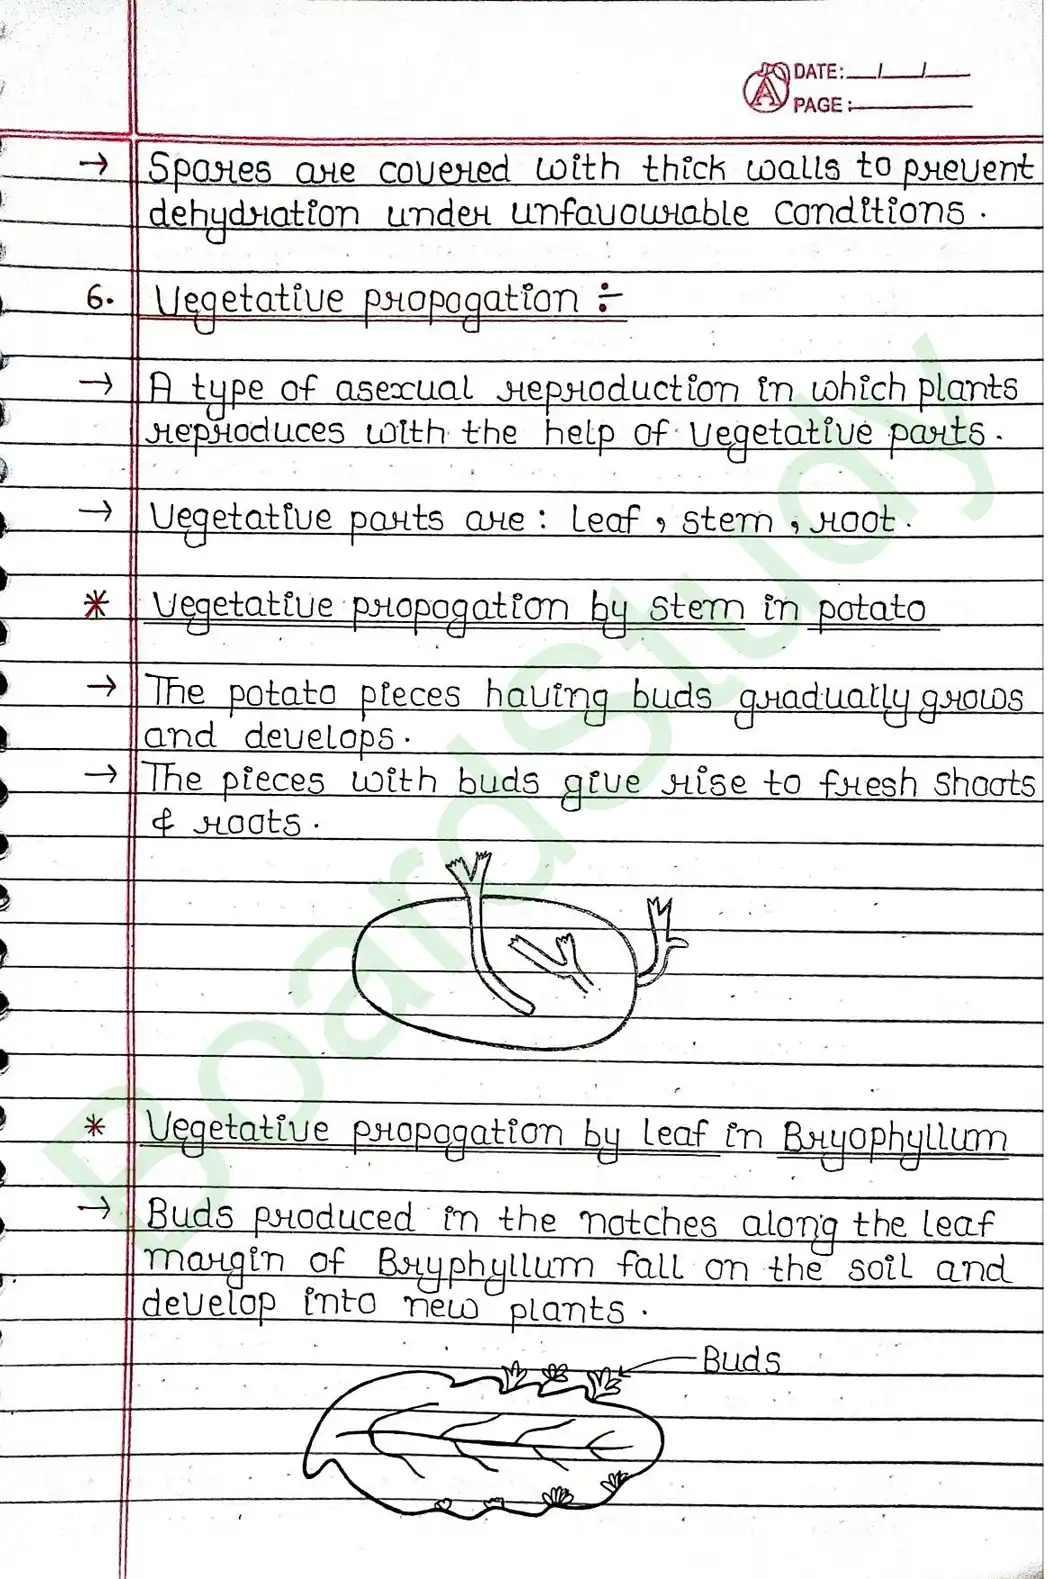 DATE: __/__/__
PAGE: ______
→ Spores are covered with thick walls to prevent
dehydration under unfavourable conditions.
6. Vegetative propogation ÷
→ A type of asexual reproduction in which plants
reproduces with the help of vegetative parts.
→ Vegetative parts are : leaf , stem , root.
* Vegetative propogation by stem in potato
→ The potato pieces having buds gradually grows
and develops.
→ The pieces with buds give rise to fresh shoots
& roots.
* Vegetative propogation by leaf in Bryophyllum
→ Buds produced in the notches along the leaf
margin of Bryphyllum fall on the soil and
develop into new plants.
Buds
BoardStudy